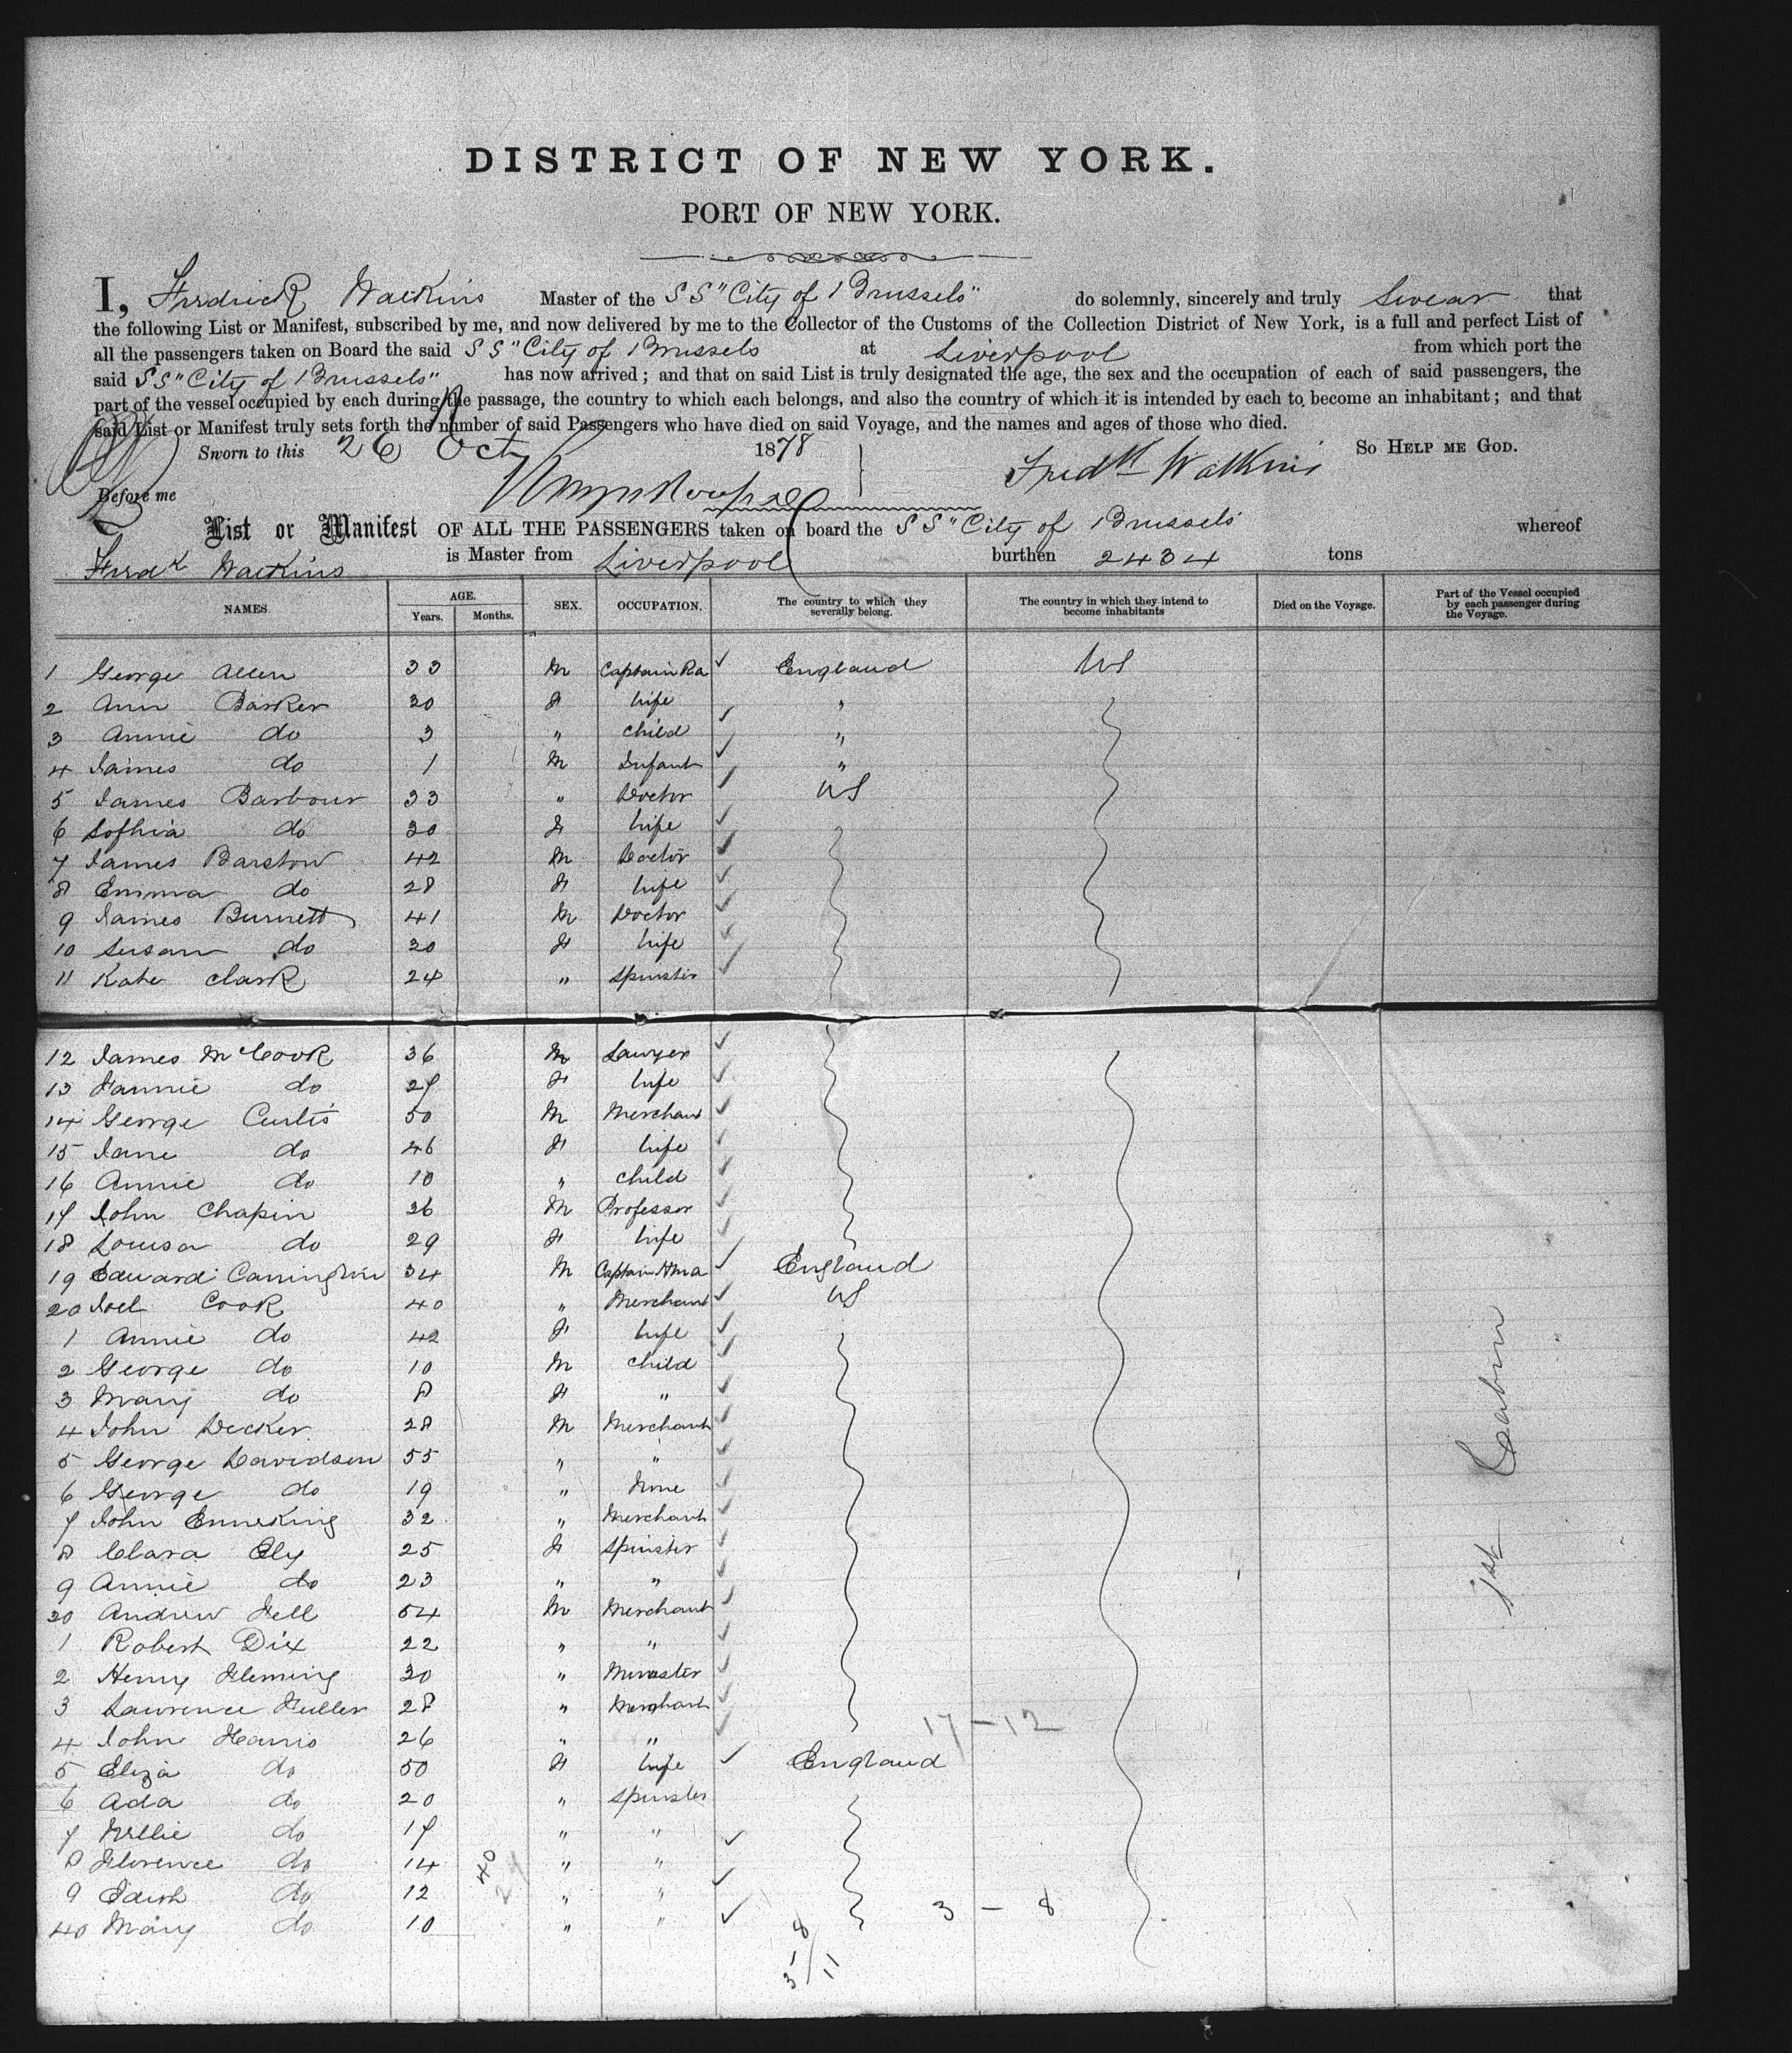 DISTRICT OF NEW YORK.
PORT OF NEW YORK.
I, Fredrick Watkins Master of the SS "City of Brussels" do solemnly, sincerely and truly Swear that
the following List or Manifest, subscribed by me, and now delivered by me to the Collector of the Customs of the Collection District of New York, is a full and perfect List of
all the passengers taken on Board the said SS "City of Brussels at Liverpool from which port the
said SS "City of Brussels" has now arrived; and that on said List is truly designated the age, the sex and the occupation of each of said passengers, the
part of the vessel occupied by each during the passage, the country to which each belongs, and also the country of which it is intended by each to become an inhabitant; and that
said List or Manifest truly sets forth the number of said Passengers who have died on said Voyage, and the names and ages of those who died.
Sworn to this 26 Oct 1878 So HELP ME GOD.
Fredk Watkins
Before me
List or Manifest OF ALL THE PASSENGERS taken on board the SS "City of Brussels whereof
Fredk Watkins is Master from Liverpool burthen 2434 tons
NAMES. AGE. Years. Months. SEX. OCCUPATION. The country to which they severally belong. The country in which they intend to become inhabitants Died on the Voyage. Part of the Vessel occupied by each passenger during the Voyage.
1 George Allen 33 M Captain Ra England US
2 Ann Barker 30 F Wife "
3 Annie do 3 " Child "
4 James do 1 M Infant "
5 James Barbour 33 " Doctor US
6 Sophia do 30 F Wife
7 James Barstow 42 M Doctor
8 Emma do 28 F Wife
9 James Burnett 41 M Doctor
10 Susan do 30 F Wife
11 Kate Clark 24 " Spinster
12 James McCook 36 M Lawyer
13 Fannie do 27 F Wife
14 George Curtis 50 M Merchant
15 Jane do 46 F Wife
16 Annie do 10 " Child
17 John Chapin 36 M Professor
18 Louisa do 29 F Wife
19 Edward Carrington 34 M Captain England
20 Joel Cook 40 " Merchant US
1 Annie do 42 F Wife
2 George do 10 M Child
3 Mary do 8 F "
4 John Decker 28 M Merchant
5 George Davidson 55 " "
6 George do 19 " None
7 John Enneking 32 " Merchant
8 Clara Ely 25 F Spinster
9 Annie do 23 " "
30 Andrew Fell 54 M Merchant
1 Robert Dix 22 " "
2 Henry Fleming 30 " Minister
3 Lawrence Fuller 28 " Merchant
4 John Harris 26 " "
17 - 12
5 Eliza do 50 F Wife England
6 Ada do 20 " Spinster
7 Nellie do 17 " "
8 Florence do 14 " "
9 Edith do 12 " "
40 Mary do 10 " " 3 - 8
40
1st Cabin